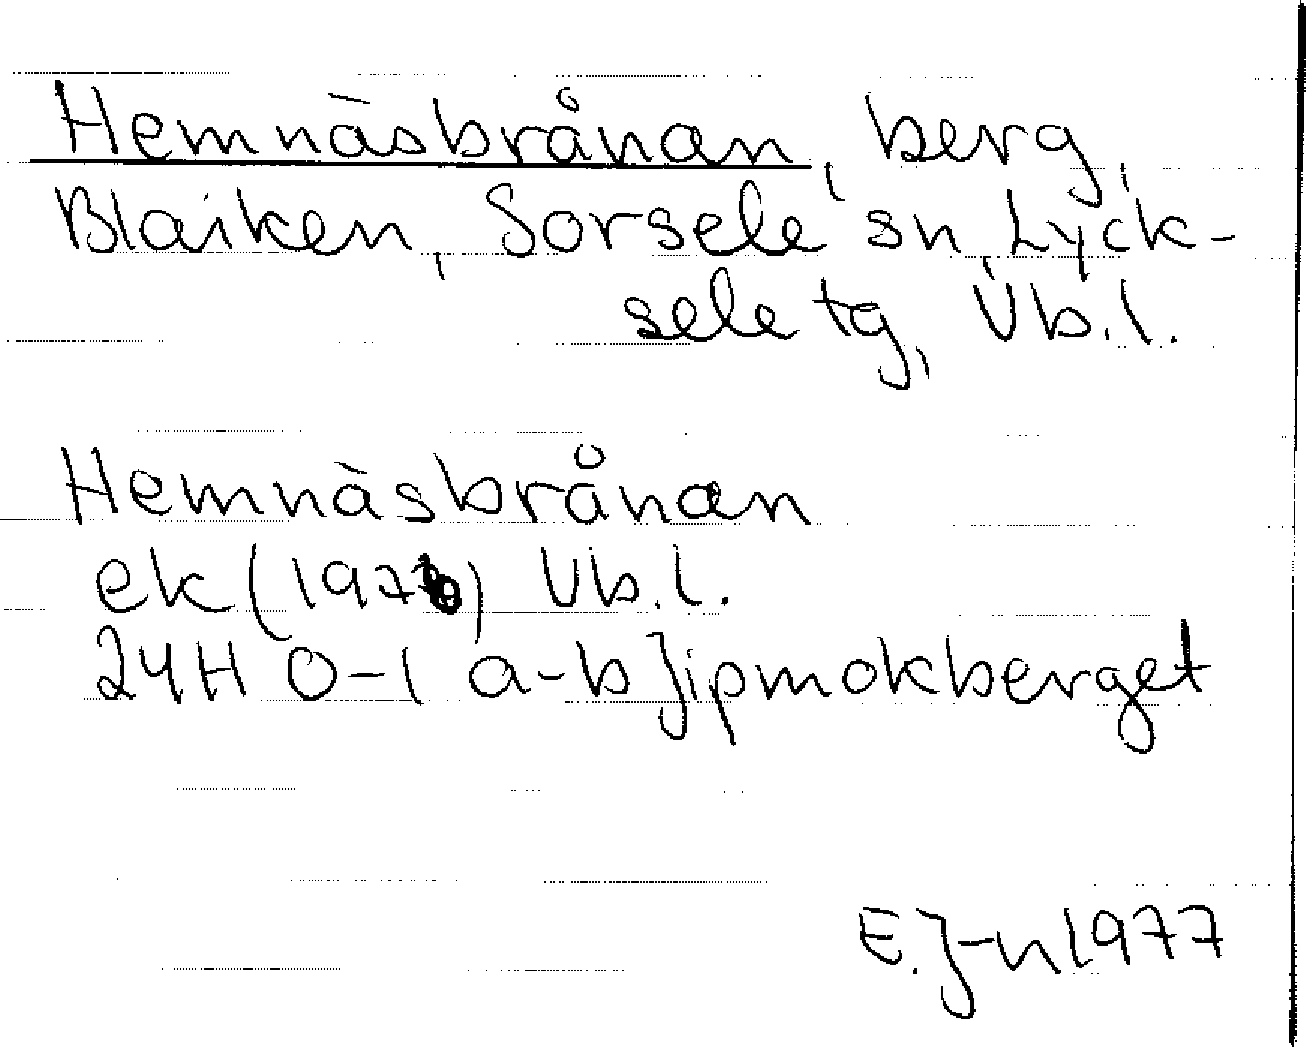 Hemnäsbrånan, berg,
Blaiken, Sorsele sn, Lyck-
sele tg, Vb.l.
Hemnäsbrånan
ek () Vb.l.
24H 0-1 a-b Jipmokberget
E.J-n 1977